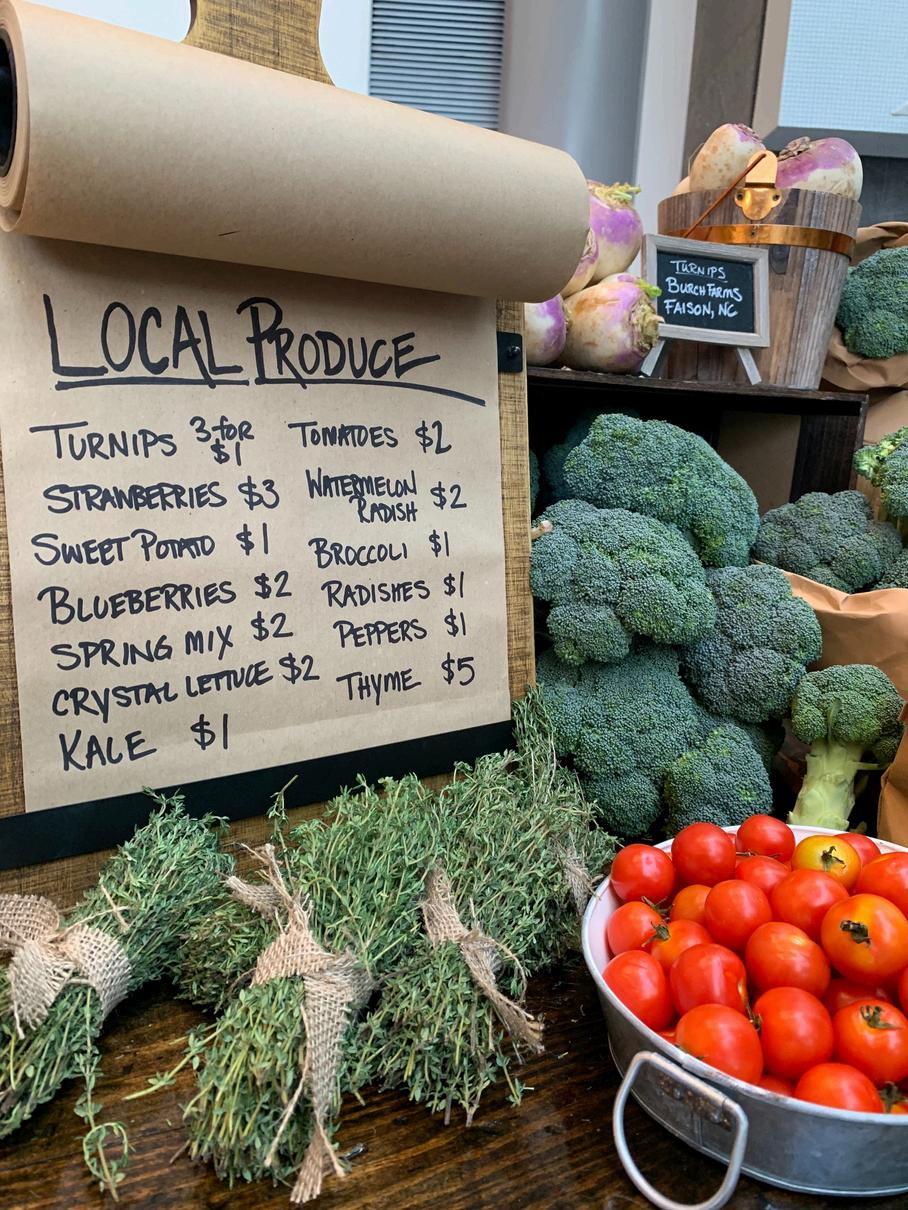 LOCAL PRODUCE
TURNIPS 3 for $1
STRAWBERRIES $3
SWEET POTATO $1
BLUEBERRIES $2
SPRING MIX $2
CRYSTAL LETTUCE $2
KALE $1
TOMATOES $2
WATERMELON
RADISH $2
BROCCOLI $1
RADISHES $1
PEPPERS $1
THYME $5
TURNIPS
BURCH FARMS
FAISON, NC